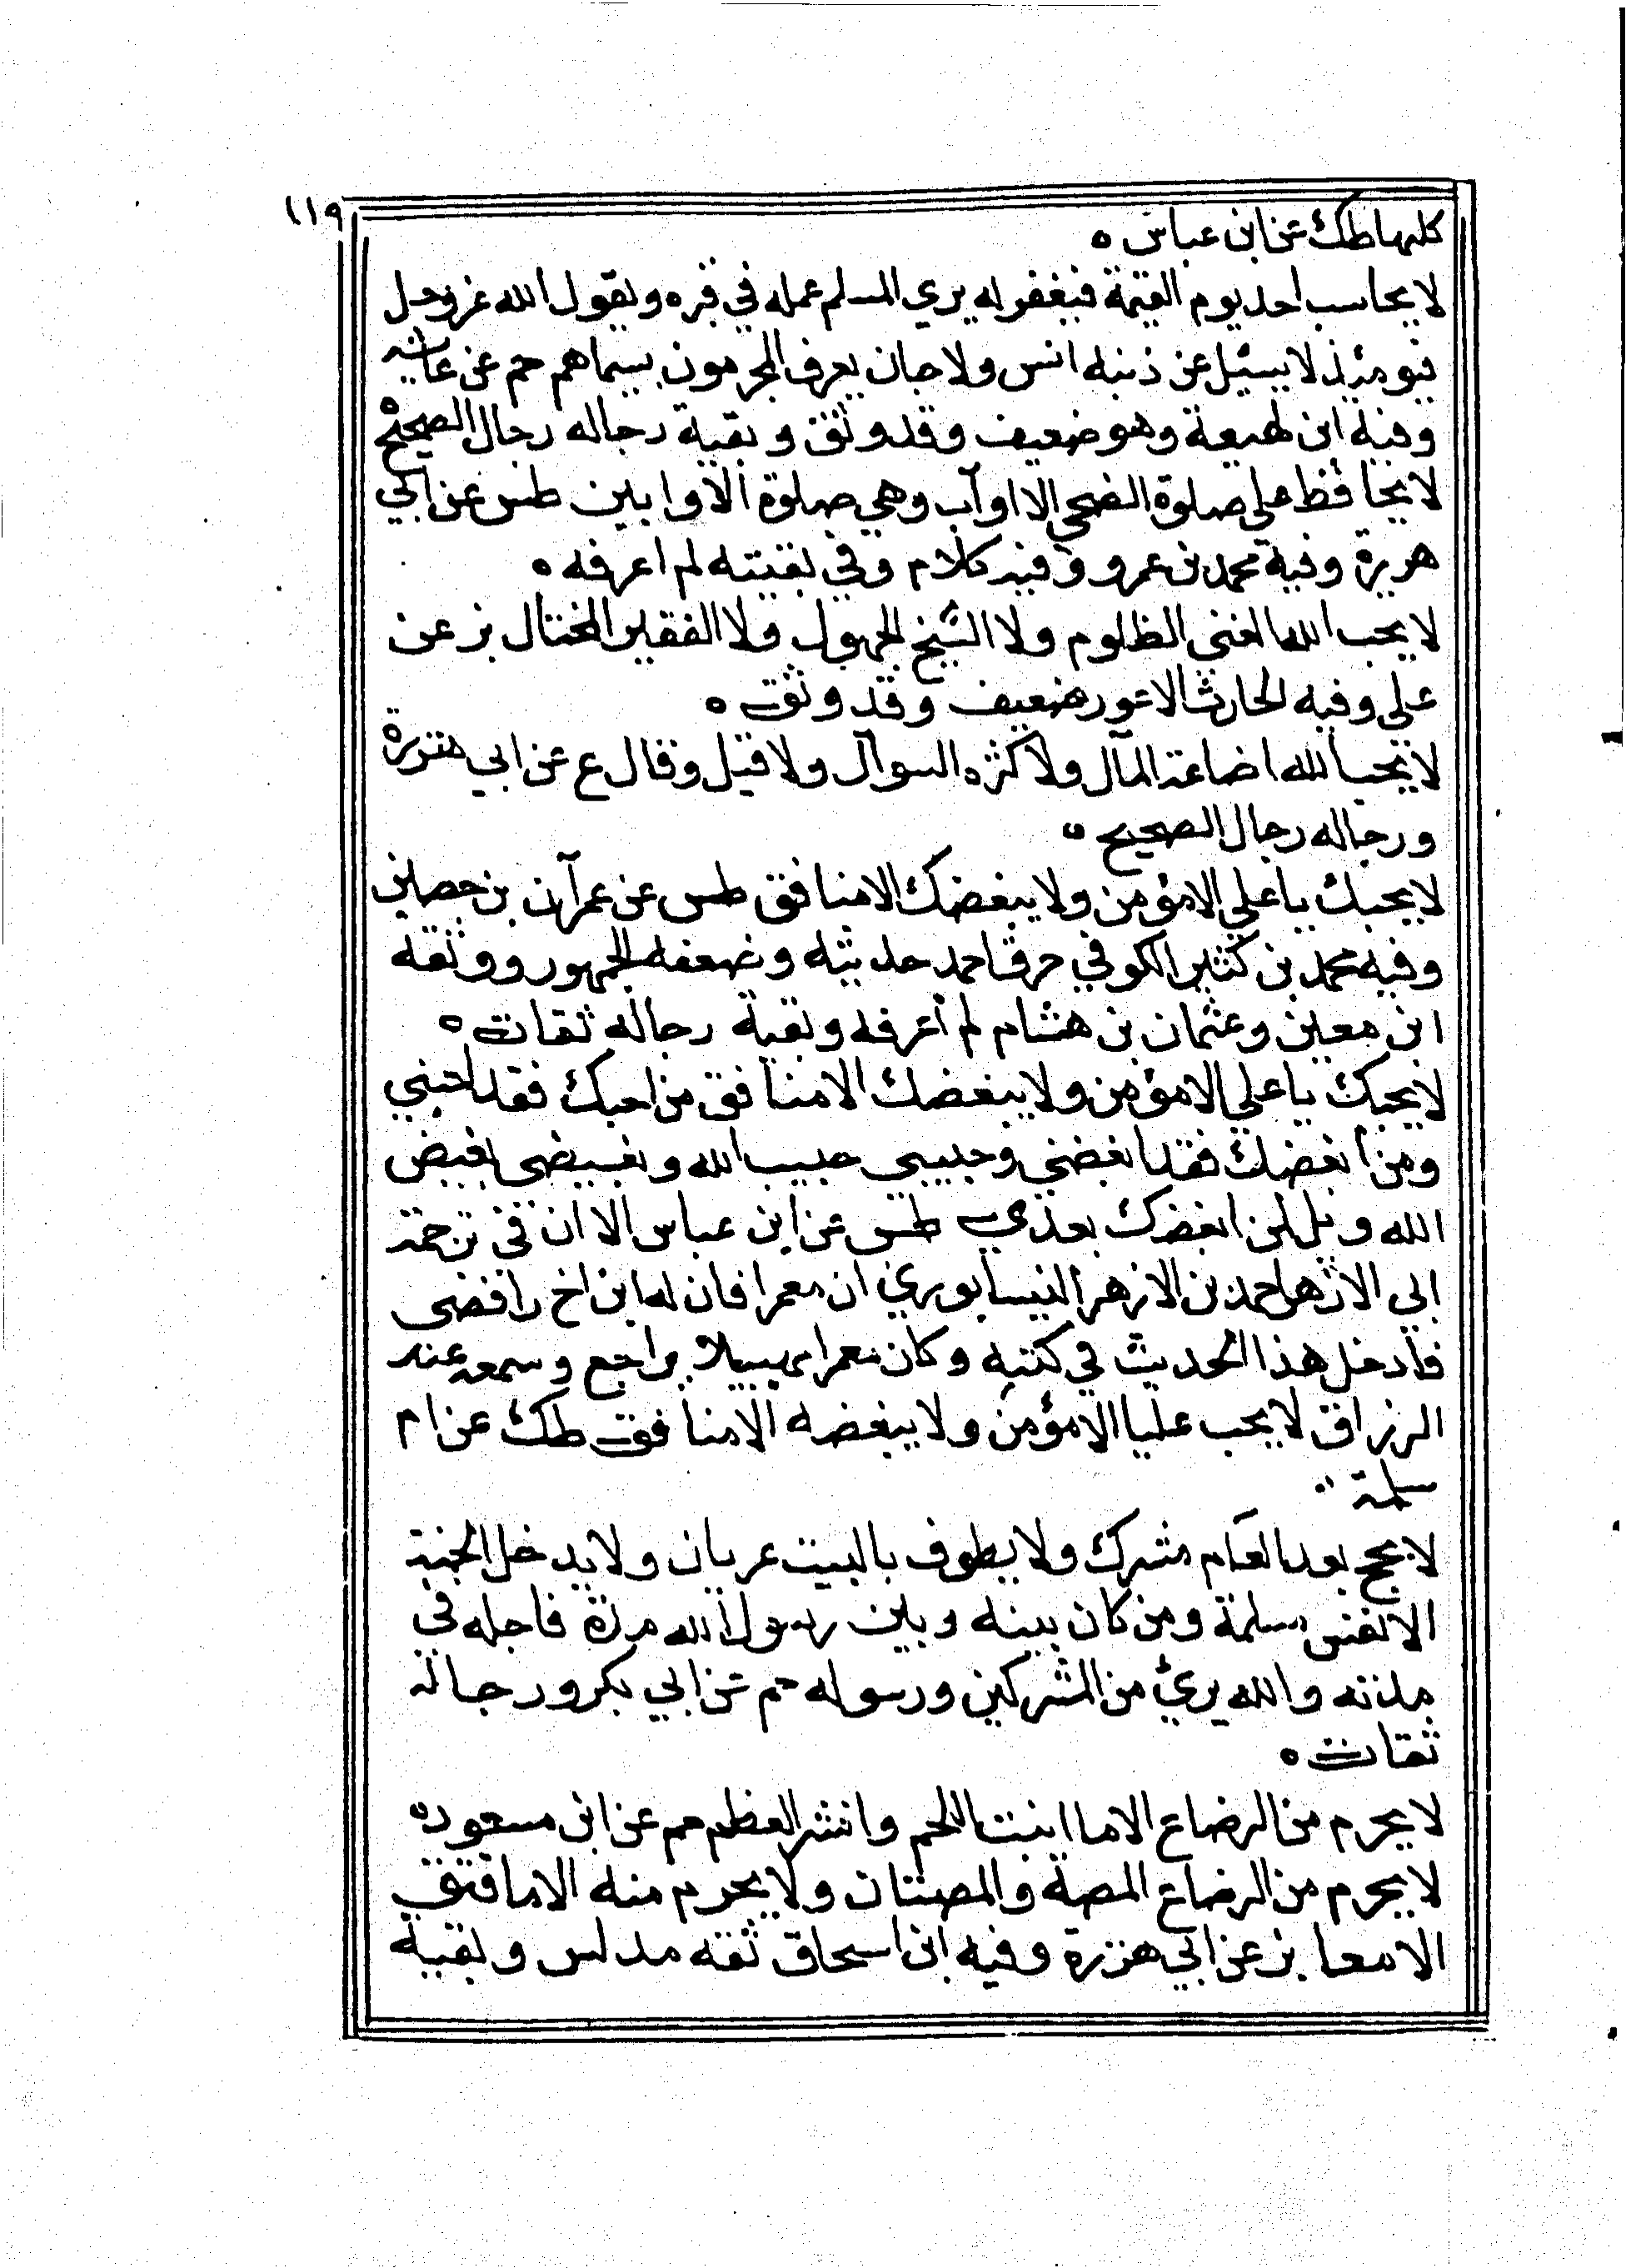 ١١٩
كلها طك عن ابن عباس ه
لا يحاسب احد يوم القيمة فيغفر له يري المسلم عمله في قبره ويقول الله عز وجل
فيومئذ لا يسئل عن ذنبه انس ولا جان يعرف المجرمون بسيماهم حم عن عائشه
وفيه ابن لهيعة وهو ضعيف وقد وثق وبقية رجاله رجال الصحيح ه
لا يحافظ علي صلوة الضحي الا اوآب وهي صلوة الاوابين طس عن ابي
هريرة وفيه محمد بن عمرو وفيه كلام وفي بقيته لم اعرفه ه
لا يحب الله الغني الظلوم ولا الشيخ الجهول ولا الفقير المختال بز عن
علي وفيه الحارث الاعور ضعيف وقد وثق ه
لا يحب الله اضاعة المآل ولا كثره السوآل ولا قيل وقال ع عن ابي هريرة
ورجاله رجال الصحيح ه
لا يحبك يا علي الا مؤمن ولا يبغضك الا منافق طس عن عمرآن بن حصين
وفيه محمد بن كثير الكوفي حرق احمد حديثه وضعفه الجمهور ووثقه
ابن معين وعثمان بن هشام لم اعرفه وبقية رجاله ثقات ه
لا يحبك يا علي الا مؤمن ولا يبغضك الا منافق من احبك فقد احبني
ومن ابغضك فقد ابغضني وحبيبي حبيب الله وبغيضي بغيض
الله ويل لمن ابغضك بعدي طس عن ابن عباس الا ان في ترجمة
ابي الازهر احمد بن الازهر النيسابوري ان معمرا فان له ابن اخ رافضي
فادخل هذا الحديث في كتبه وكان معمرا مهيبا لا يراجع وسمعه عند
الرزاق لا يحب عليا الا مؤمن ولا يبغضه الا منافق طك عن ام
سلمة
لا يحج بعد العام مشرك ولا يطوف بالبيت عريان ولا يدخل الجنة
الا نفس مسلمة ومن كان بينه وبين رسول الله مدة فاجله في
مدته والله بريء من المشركين ورسوله حم عن ابي بكر ورجاله
ثقات ه
لا يحرم من الرضاع الا ما انبت اللحم وانشر العظم حم عن ابن مسعود ه
لا يحرم من الرضاع المصة والمصتان ولا يحرم منه الا ما فتق
الامعا بز عن ابي هريرة وفيه ابن اسحاق ثقه مدلس وبقية